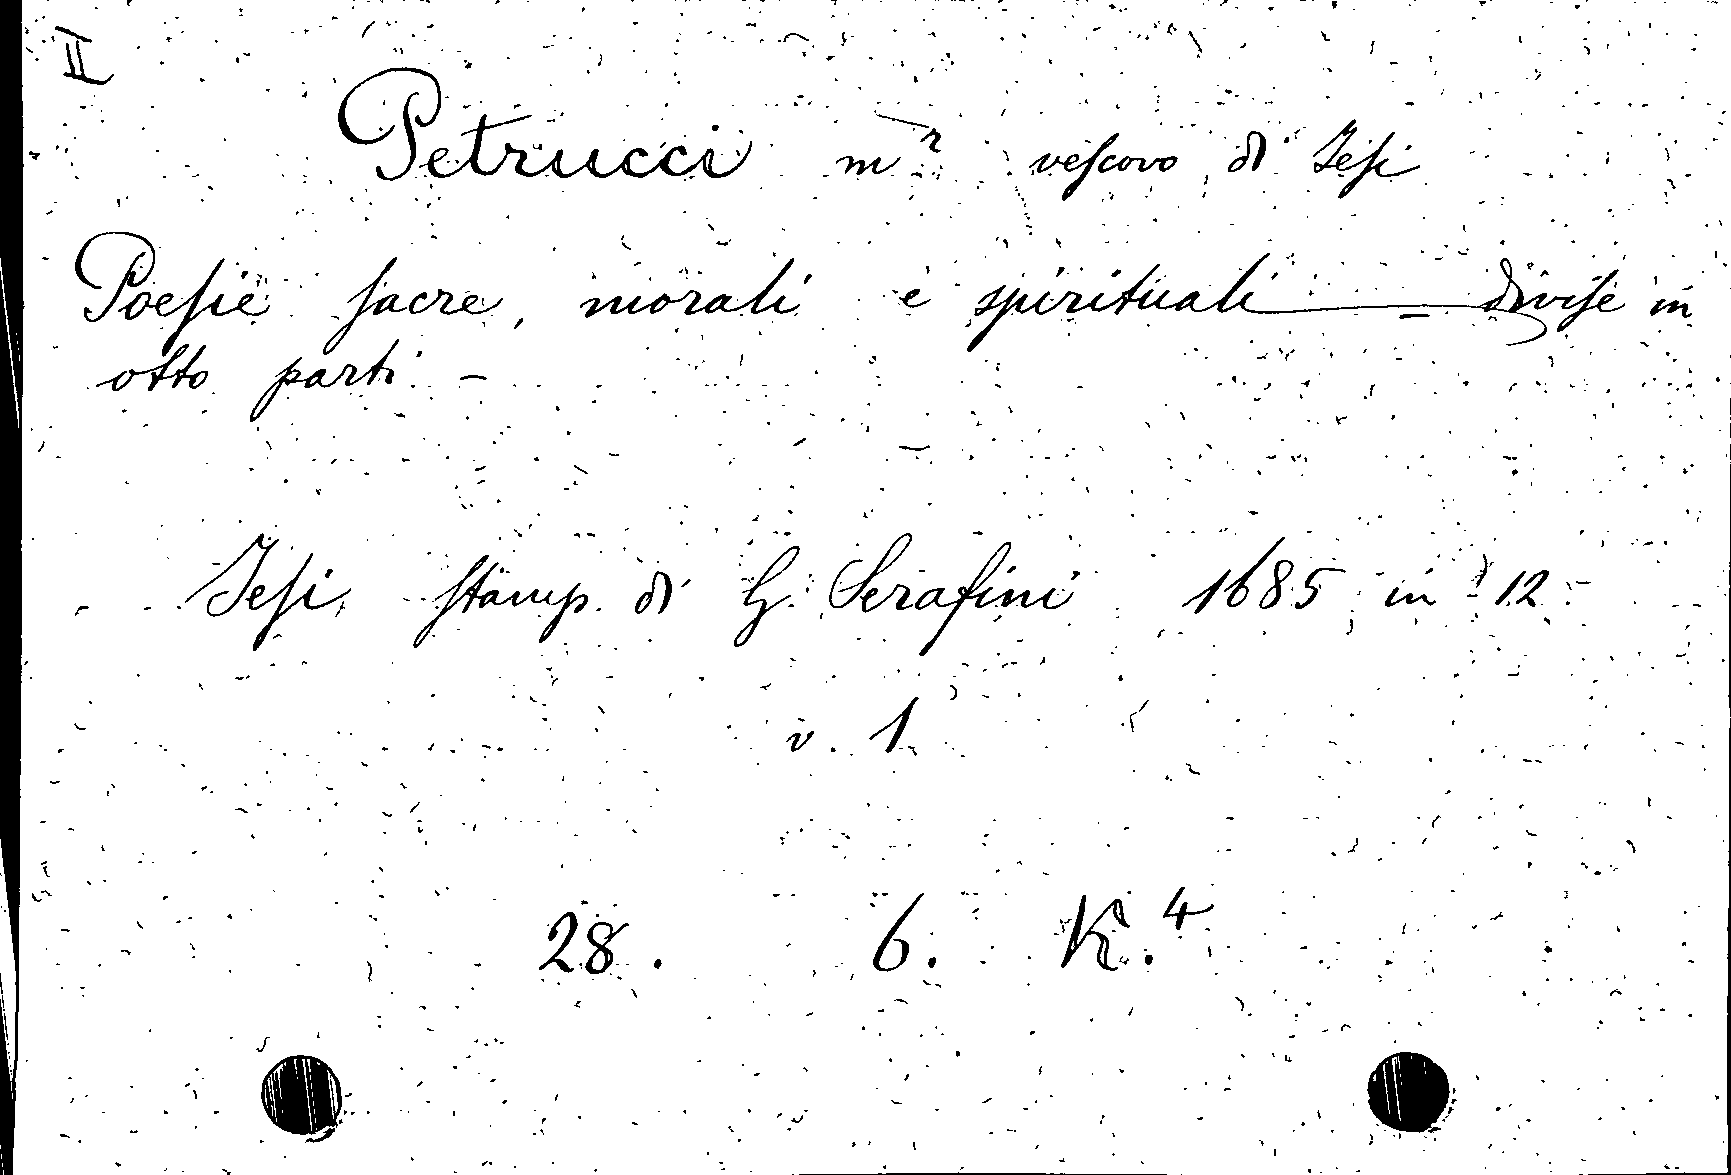 II
Petrucci mʳ veſcovo di Jeſi
Poeſie ſacre, morali e spirituali — diviſe in
otto parti -
Jeſi, ſtamp. di G. Serafini 1685 in 12
v. 1
28. 6. K.⁴